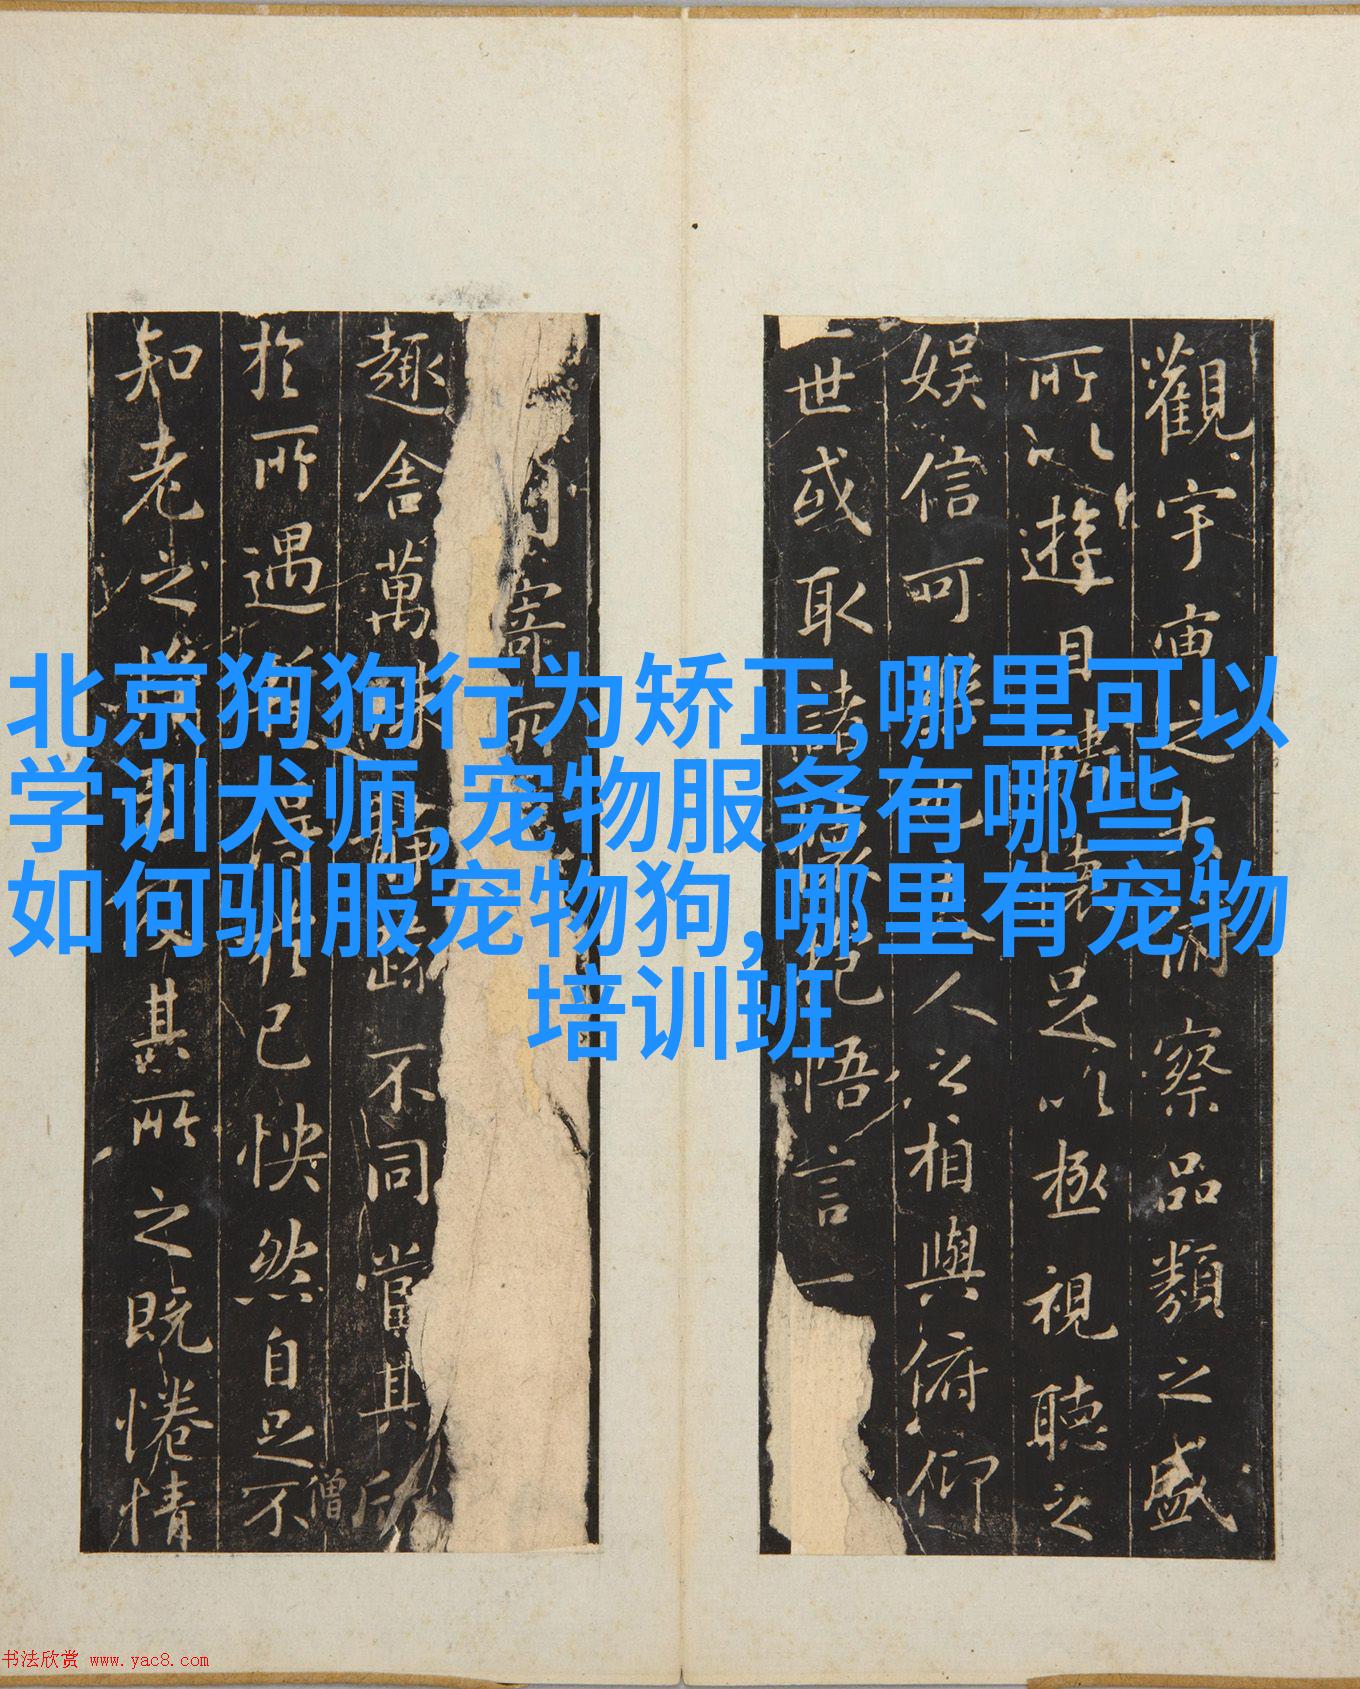 北京狗狗行为矫正,哪里可以
学训犬师,宠物服务有哪些,
如何驯服宠物狗,哪里有宠物
培训班
觀宇宙之大俯察品類之盛
所以遊目騁懷足以極視聽之
娛信可樂也夫人之相與俯仰
一世或取諸懷抱悟言一
寄所
趣舍萬殊靜躁不同當其欣
僧
於所遇暫得於己怏然自足不
知老之將至及其所之既惓情
书法欣赏 www.yac8.com